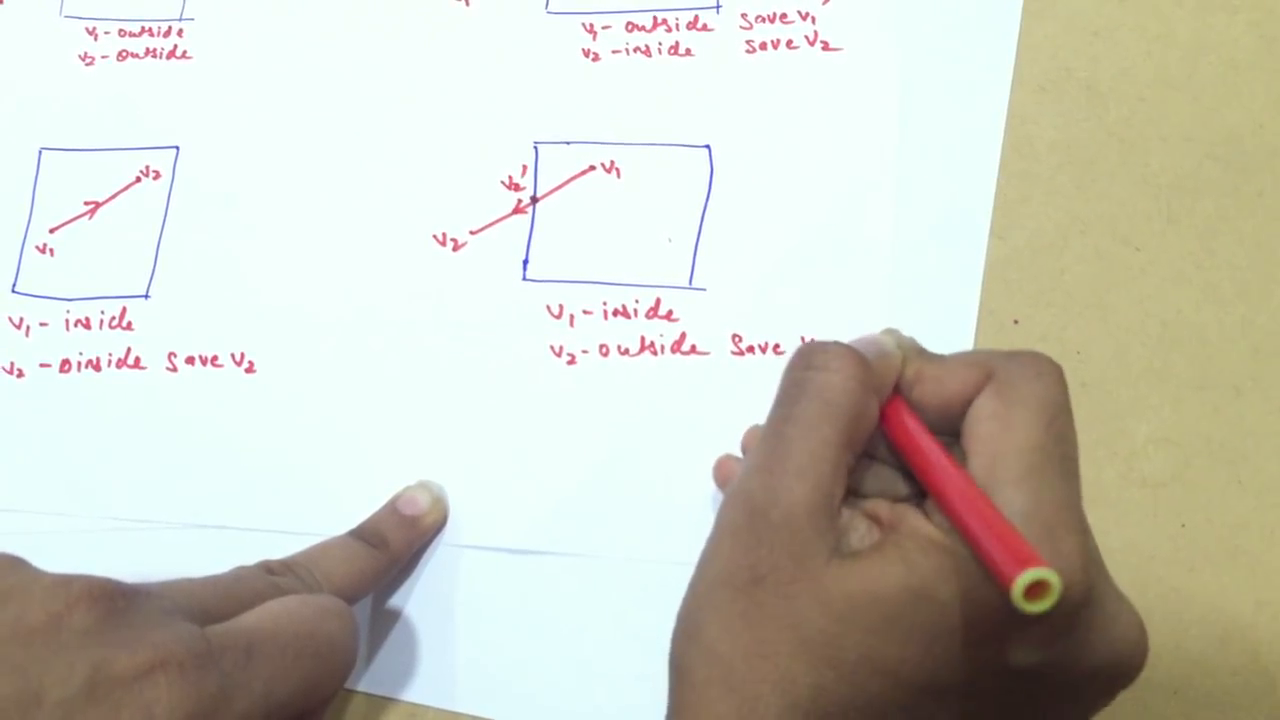 v1 - outside
v2 - outside
v1 - outside save v1'
v2 - inside save v2
v2
v1
v1 - inside
v2 - inside save v2
v2'
v1
v2
v1 - inside
v2 - outside save